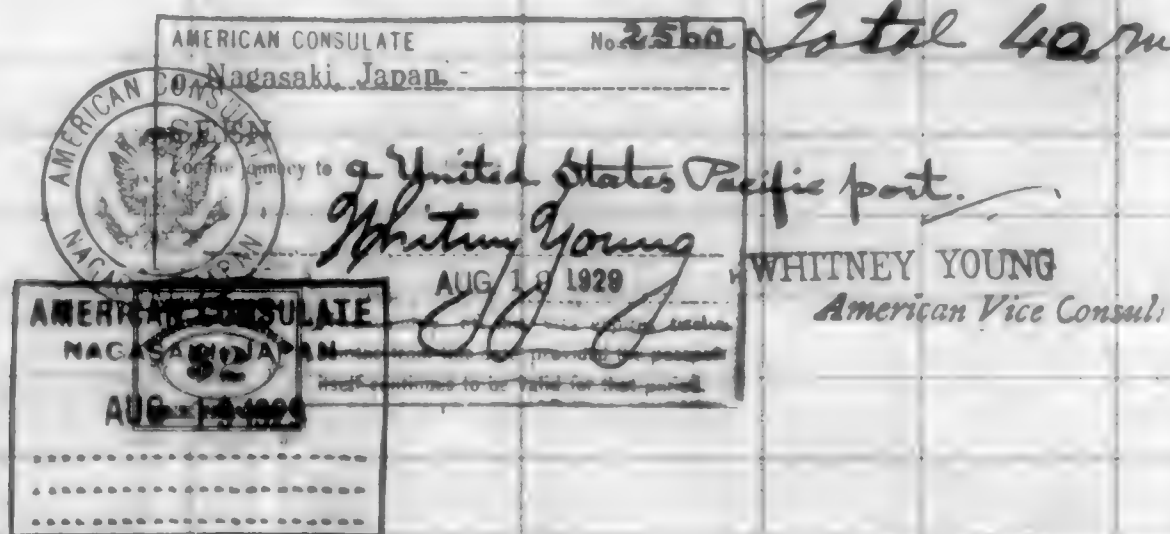 AMERICAN CONSULATE No. 256a Total 40
Nagasaki, Japan.
SEEN
For the journey to a United States Pacific port.
Whitney Young
AUG 19 1929
WHITNEY YOUNG
American Vice Consul
itself continues to be valid for that period.
AMERICAN CONSULATE
NAGASAKI, JAPAN
AMERICAN CONSULATE
NAGASAKI, JAPAN
AUG 1929